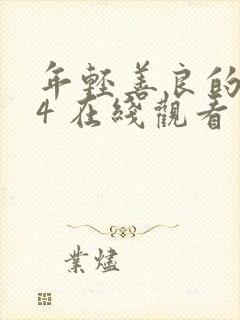 年輕善良的
4 在綫觀看
業燼